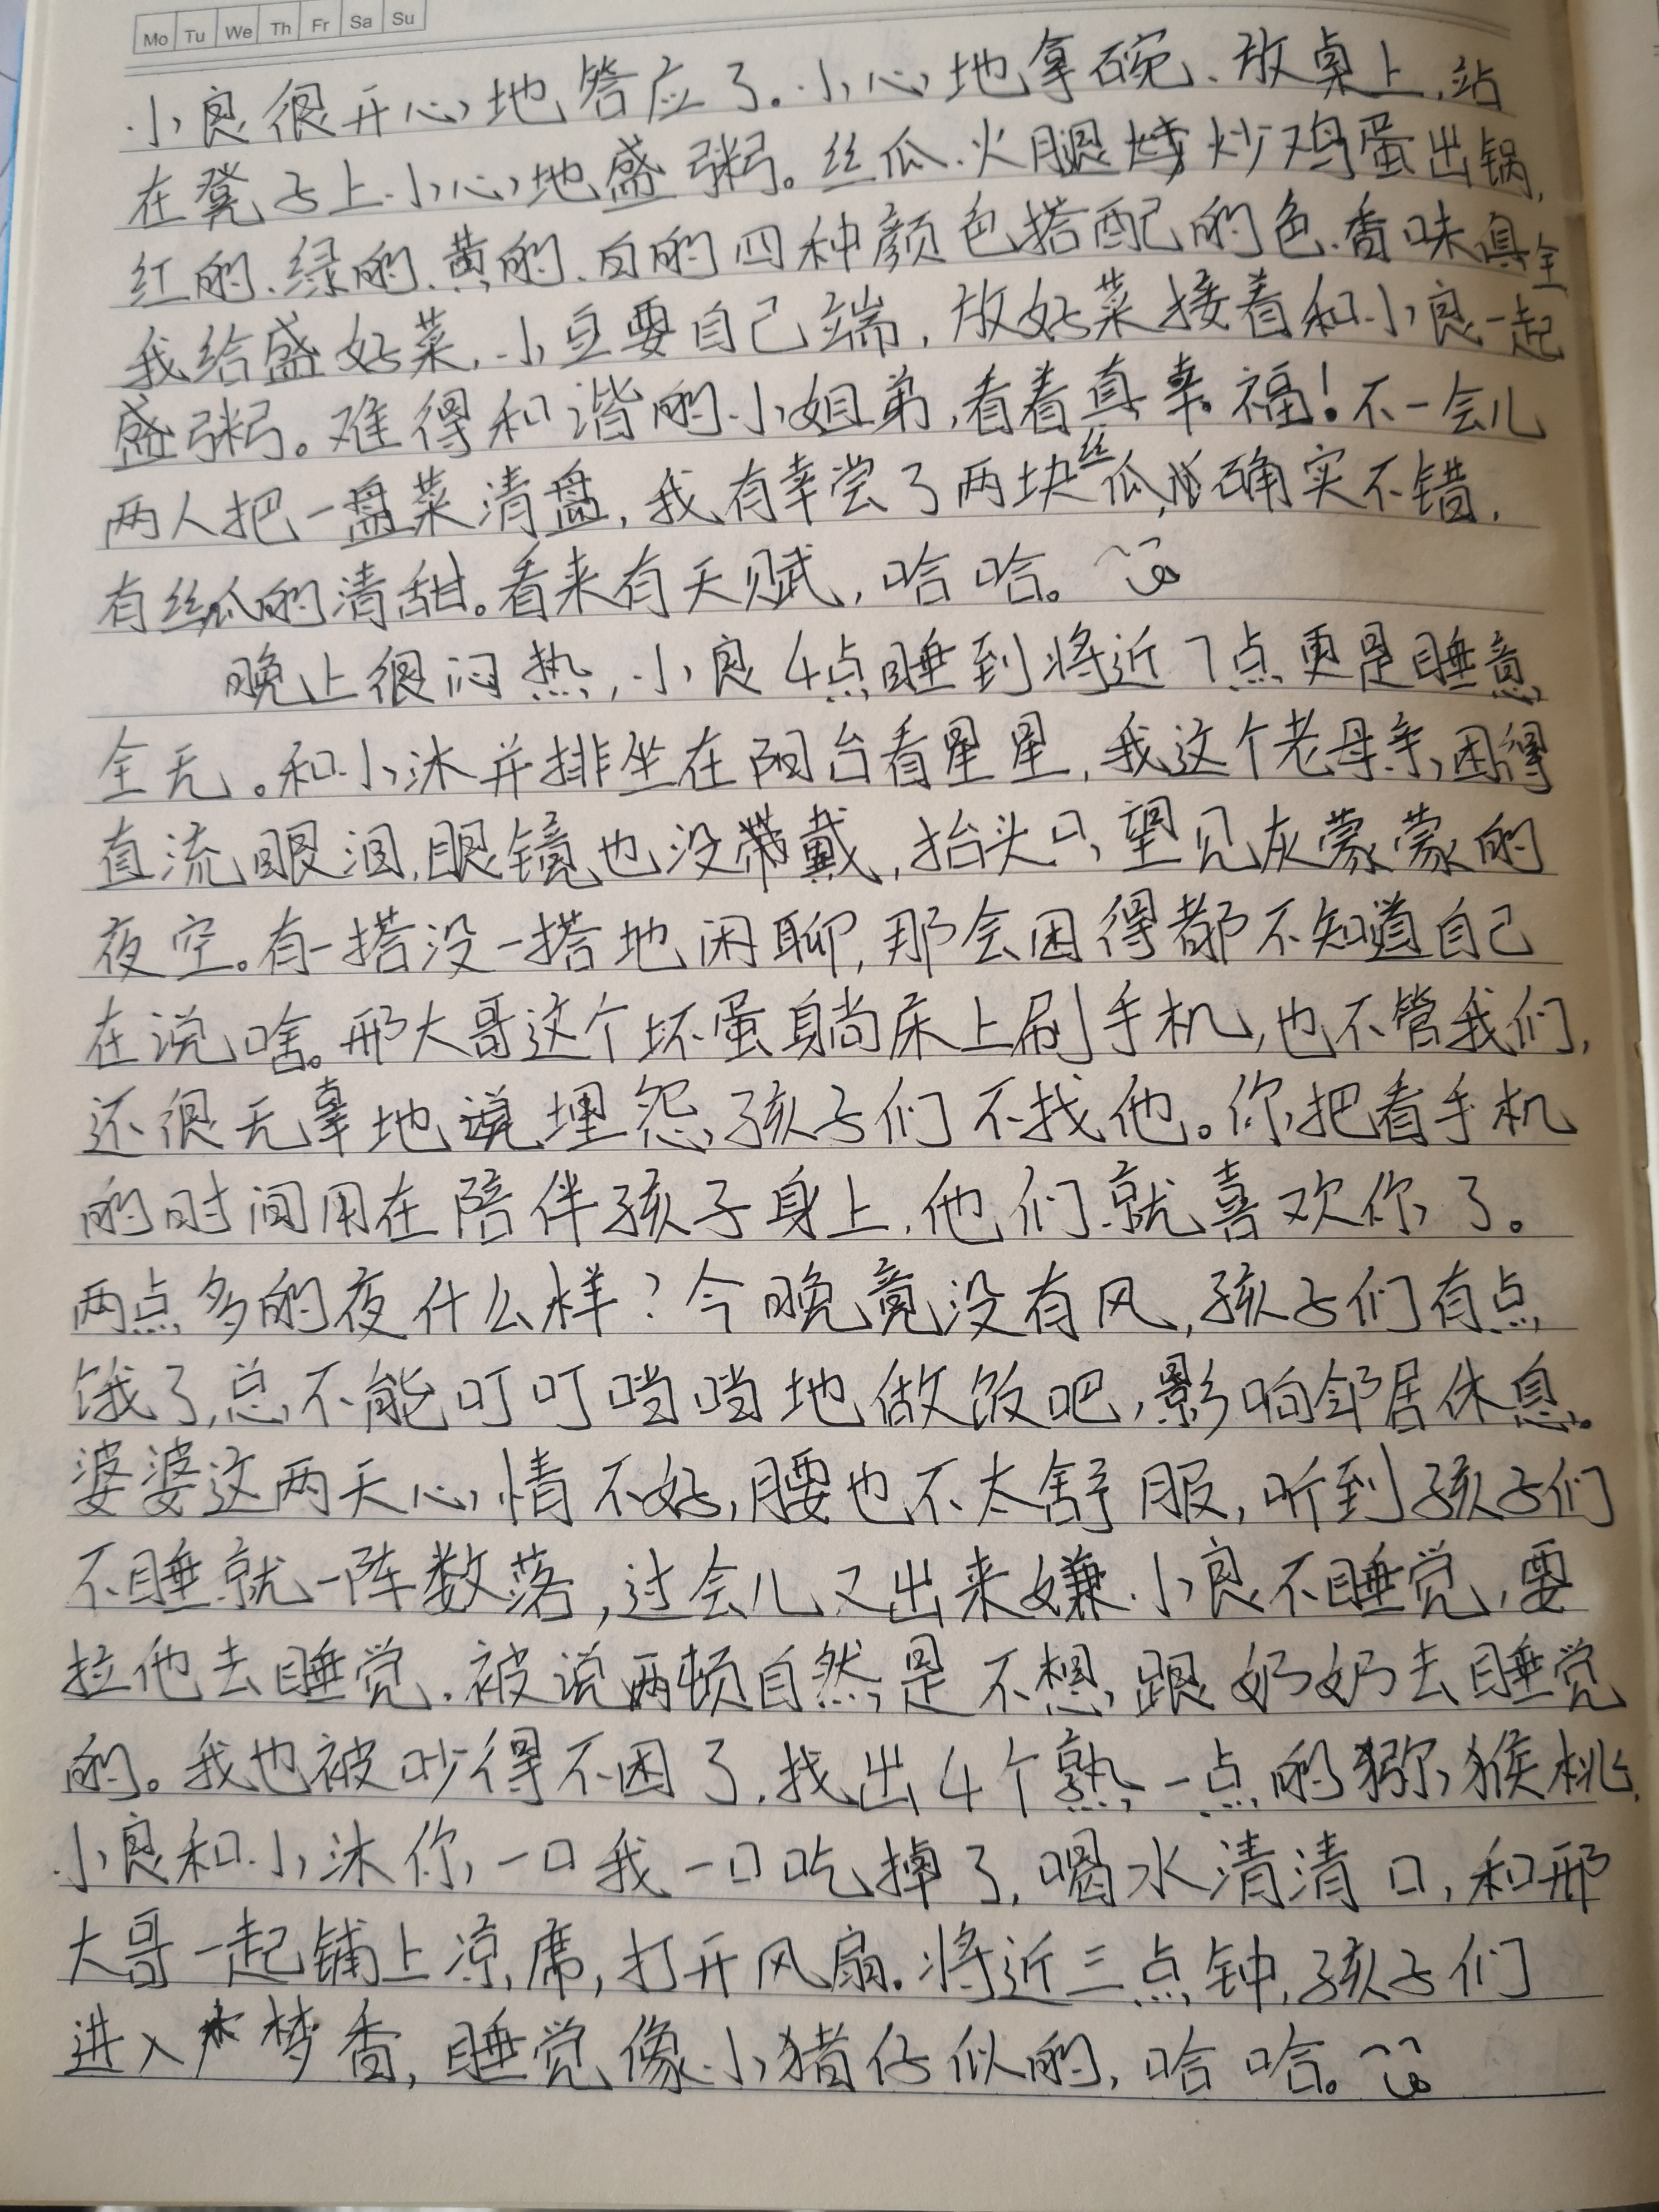 Mo Tu We Th Fr Sa Su
小良很开心地答应了。小心地拿碗、放桌上,站
在凳子上小心地盛粥。丝瓜、火腿炒鸡蛋出锅,
红的、绿的、黄的、白的四种颜色搭配的色、香味俱全
我给盛好菜,小豆要自己端,放好菜接着和小良一起
盛粥。难得和谐的小姐弟,看着真幸福!不一会儿
两人把一盘菜清盘,我有幸尝了两块丝瓜,确实不错,
有丝瓜的清甜。看来有天赋,哈哈。
晚上很闷热,小良4点睡到将近7点更是睡意
全无。和小沐并排坐在阳台看星星,我这个老母亲困得
直流眼泪,眼镜也没戴,抬头只望见灰蒙蒙的
夜空。有一搭没一搭地闲聊,那会困得都不知道自己
在说啥。邢大哥这个坏蛋躺床上刷手机,也不管我们,
还很无辜地说埋怨孩子们不找他。你把看手机
的时间用在陪伴孩子身上,他们就喜欢你了。
两点多的夜什么样?今晚竟没有风,孩子们有点
饿了,总不能叮叮当当地做饭吧,影响邻居休息。
婆婆这两天心情不好,腰也不太舒服,听到孩子们
不睡就一阵数落,过会儿又出来嫌小良不睡觉,要
拉他去睡觉。被说两顿自然是不想跟奶奶去睡觉
的。我也被吵得不困了,找出4个熟一点的猕猴桃,
小良和小沐你一口我一口吃掉了,喝水清清口,和邢
大哥一起铺上凉席,打开风扇。将近三点钟,孩子们
进入梦香,睡觉像小猪仔似的,哈哈。